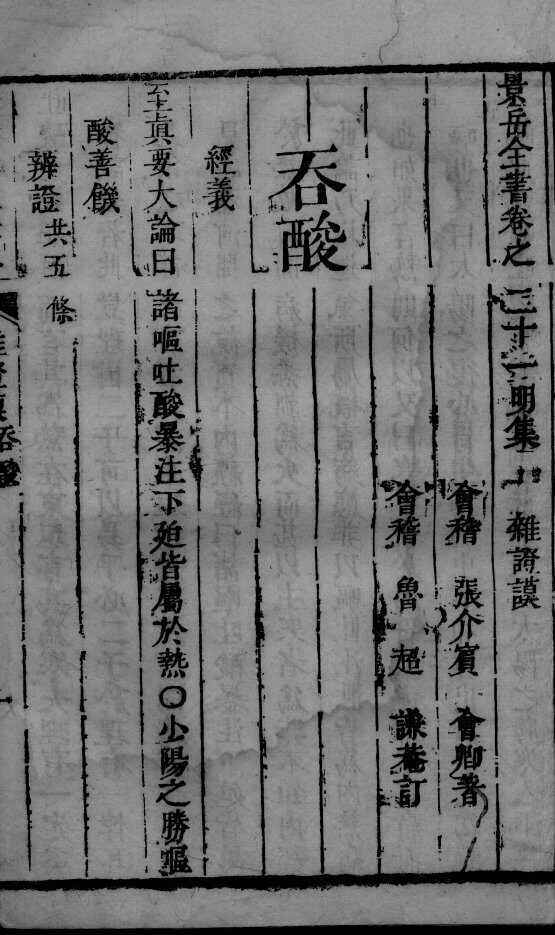 景岳全書卷之二十一明集 雜證謨
會稽 張介賓 會卿著
會稽 魯超 謙菴訂
吞酸
經義
至真要大論曰諸嘔吐酸暴注下廹皆屬於熱〇少陽之勝嘔
酸善饑
辨證共五條
吞酸